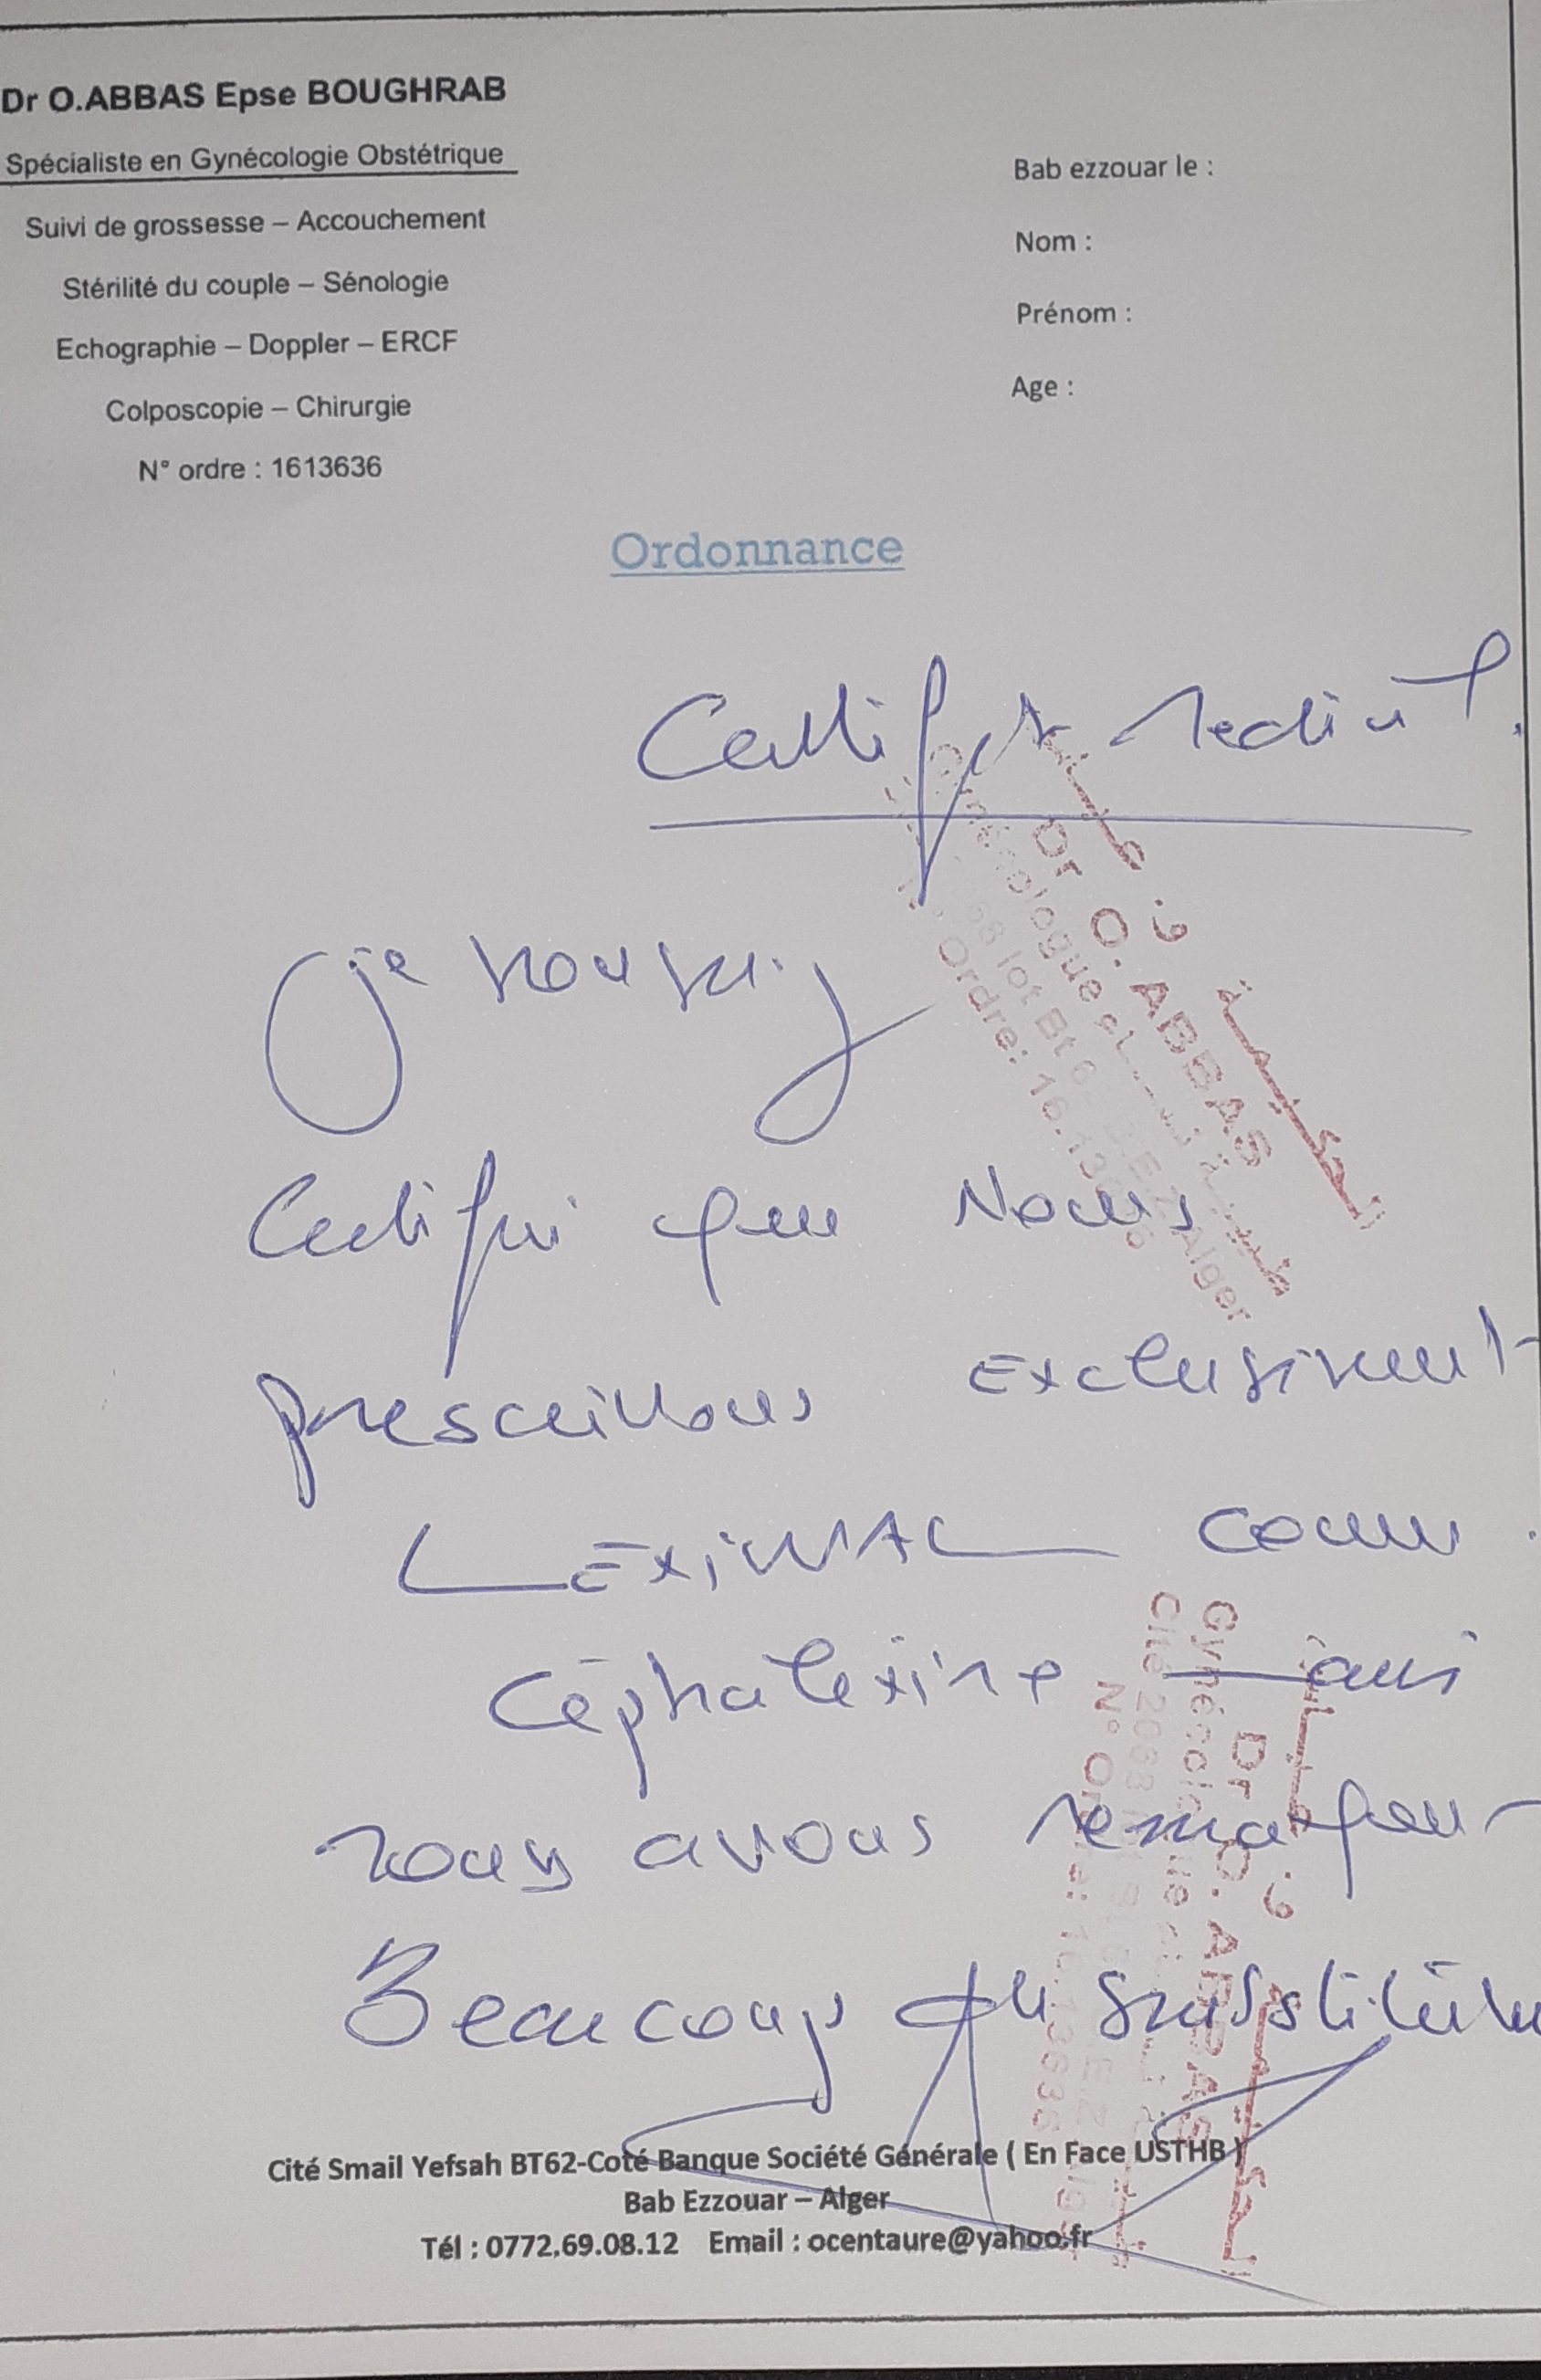 Dr O.ABBAS Epse BOUGHRAB
Spécialiste en Gynécologie Obstétrique
Suivi de grossesse – Accouchement
Stérilité du couple – Sénologie
Echographie – Doppler – ERCF
Colposcopie – Chirurgie
N° ordre : 1613636
Bab ezzouar le :
Nom :
Prénom :
Age :
Ordonnance
Certificat Medical.
je
Certifie que Nous
prescrivons exclusivement
LEXIMAL comme
Céphalexine
nous avons remarquer
Beaucoup de substitution
Dr O. ABBAS
Gynécologue
Ordre: 16.13636
Alger
Dr O. ABBAS
Gynécologue
Cité 2068
N° Ordre: 16.13636
Cité Smail Yefsah BT62-Coté Banque Société Générale ( En Face USTHB )
Bab Ezzouar – Alger
Tél : 0772.69.08.12 Email : ocentaure@yahoo.fr